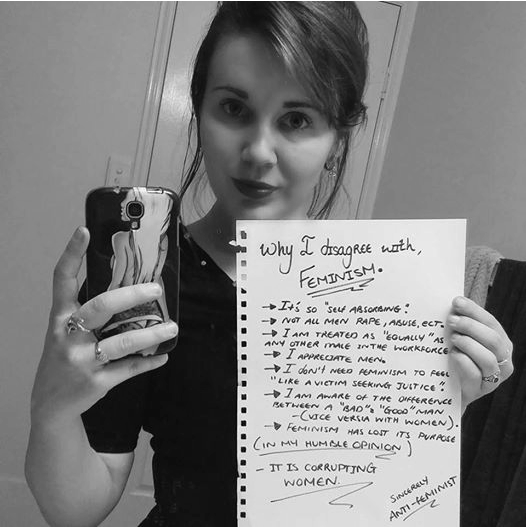 Why I disagree with,
FEMINISM.
→ It's so "SELF ABSORBING".
→ NOT ALL MEN RAPE, ABUSE, ECT.
→ I AM TREATED AS "EQUALLY" AS
ANY OTHER MALE IN THE WORKFORCE
→ I APPRECIATE MEN.
→ I DON'T NEED FEMINISM TO FEEL
"LIKE A VICTIM SEEKING JUSTICE".
→ I AM AWARE OF THE DIFFERENCE
BETWEEN A "BAD" & "GOOD" MAN
-(VICE VERSIA WITH WOMEN).
→ FEMINISM HAS LOST ITS PURPOSE
(IN MY HUMBLE OPINION)
- IT IS CORRUPTING
WOMEN.
SINCERELY
ANTI-FEMINIST